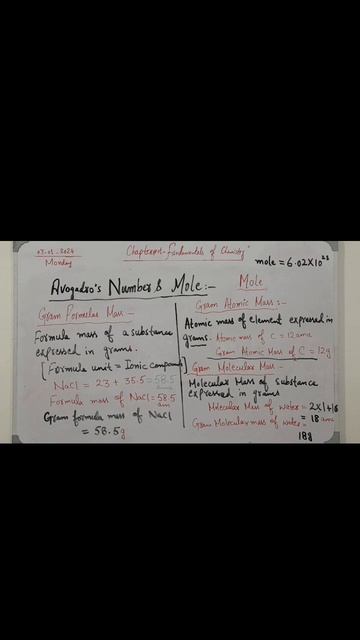 Monday
Chapter#1- Fundamentals of Chemistry"
mole = 6.02X10²³
Avogadro's Number & Mole:-
Mole
Gram Formulas Mass-
Formula mass of a substance
expressed in grams.
[Formula unit = Ionic compounds]
NaCl = 23 + 35.5 = 58.5
Formula mass of NaCl = 58.5
amu
Gram formula mass of NaCl
= 58.5g
Gram Atomic Mass:-
Atomic mass of element expressed in
grams. Atomic mass of C = 12amu
Gram Atomic Mass of C = 12g
Gram Molecular Mass-
Molecular Mass of substance
expressed in grams
Molecular Mass of water = 2X1+16
= 18 amu
Gram Molecular mass of water =
18g